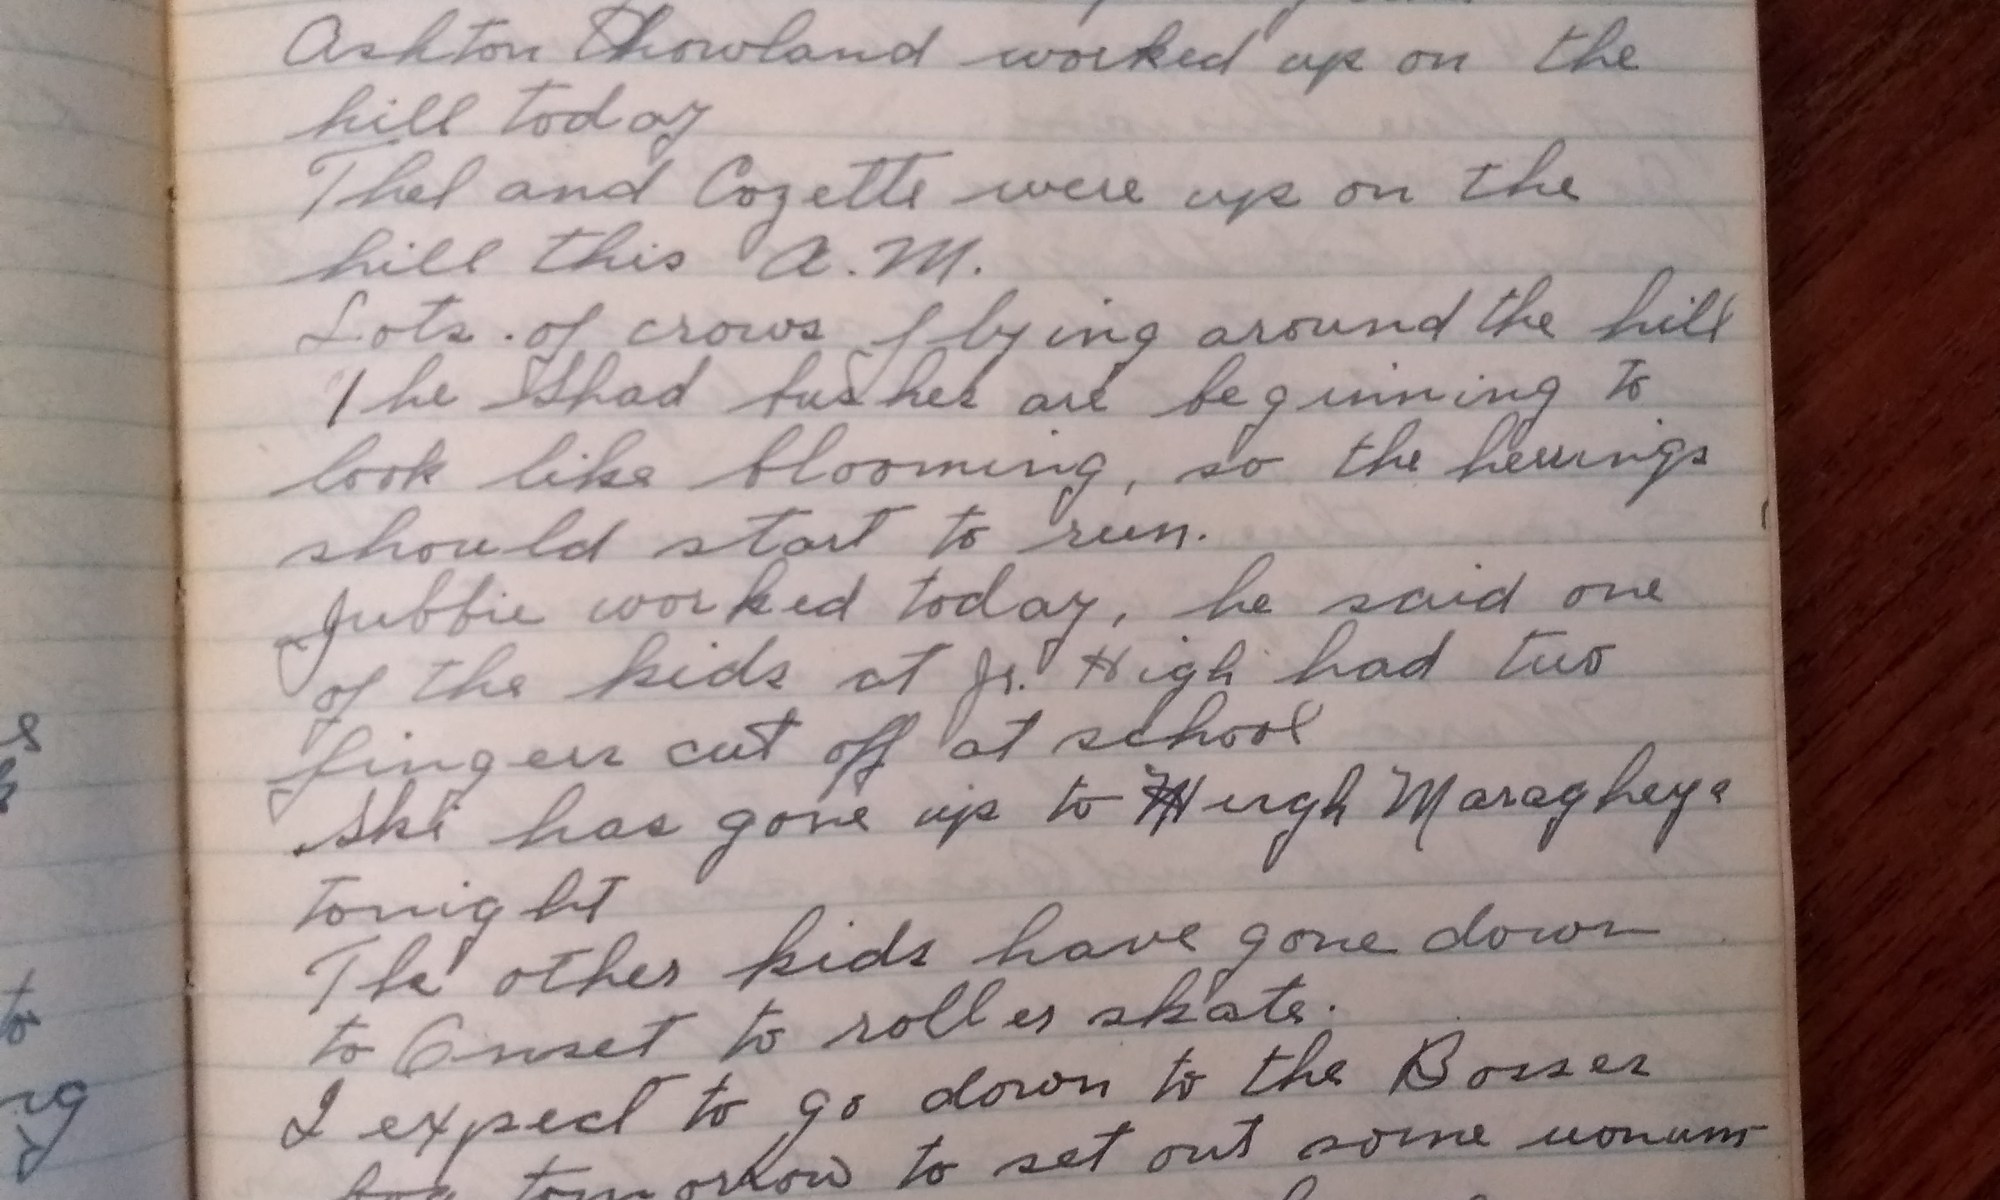 Ashton Showland worked up on the
hill today
Thel and Cozette were up on the
hill this A.M.
Lots of crows flying around the hill
The Shad bushes are beginning to
look like blooming, so the herrings
should start to run.
Jubbie worked today, he said one
of the kids at Jr. High had two
fingers cut off at school
Ski has gone up to Hugh Maragheys
tonight
The other kids have gone down
to Onset to roller skate.
I expect to go down to the Bosses
bog tomorrow to set out some